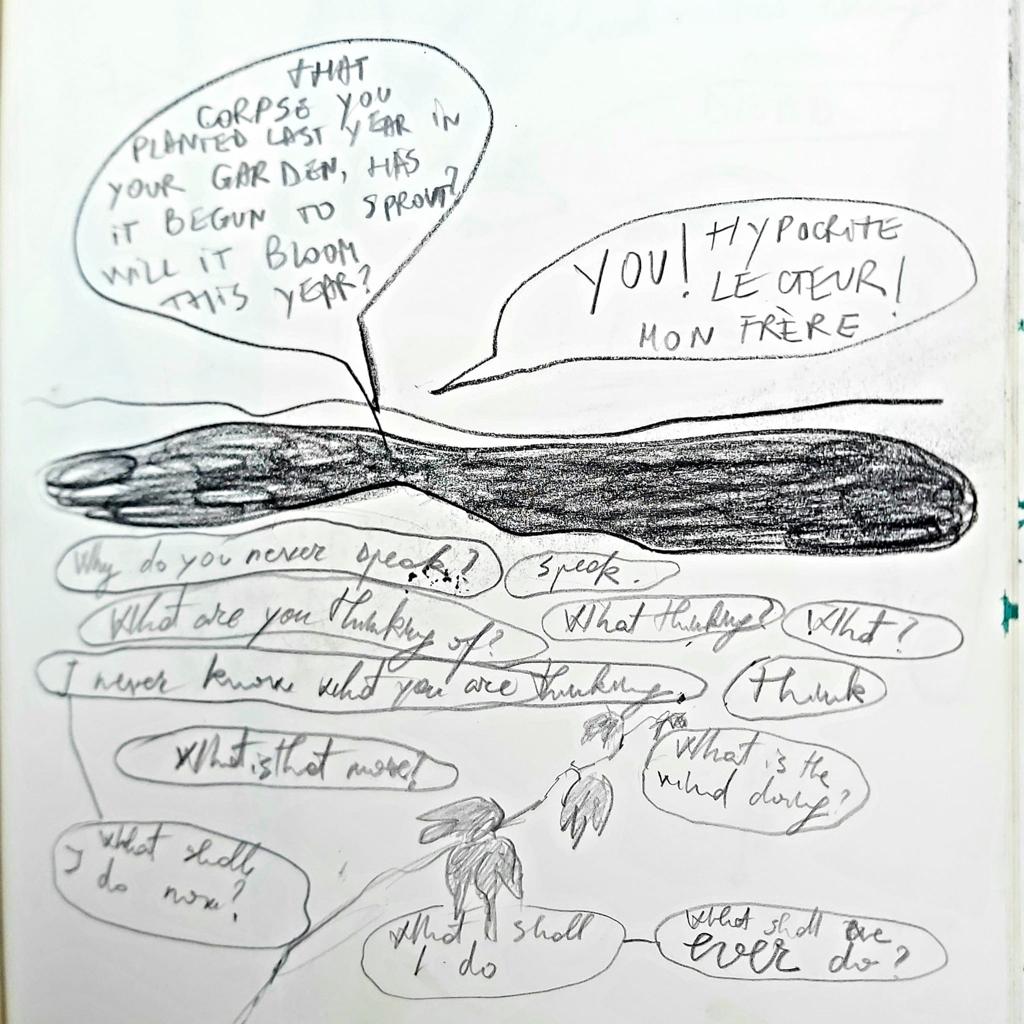 THAT
CORPSE YOU
PLANTED LAST YEAR IN
YOUR GARDEN, HAS
IT BEGUN TO SPROUT?
WILL IT BLOOM
THIS YEAR?
YOU! HYPOCRITE
LECTEUR!
MON FRÈRE
Why do you never speak?
Speak.
What are you thinking of?
What thinking?
What?
I never know what you are thinking.
Think
What is that noise?
What is the
wind doing?
What shall
I do now?
What shall
I do
What shall we
ever do?